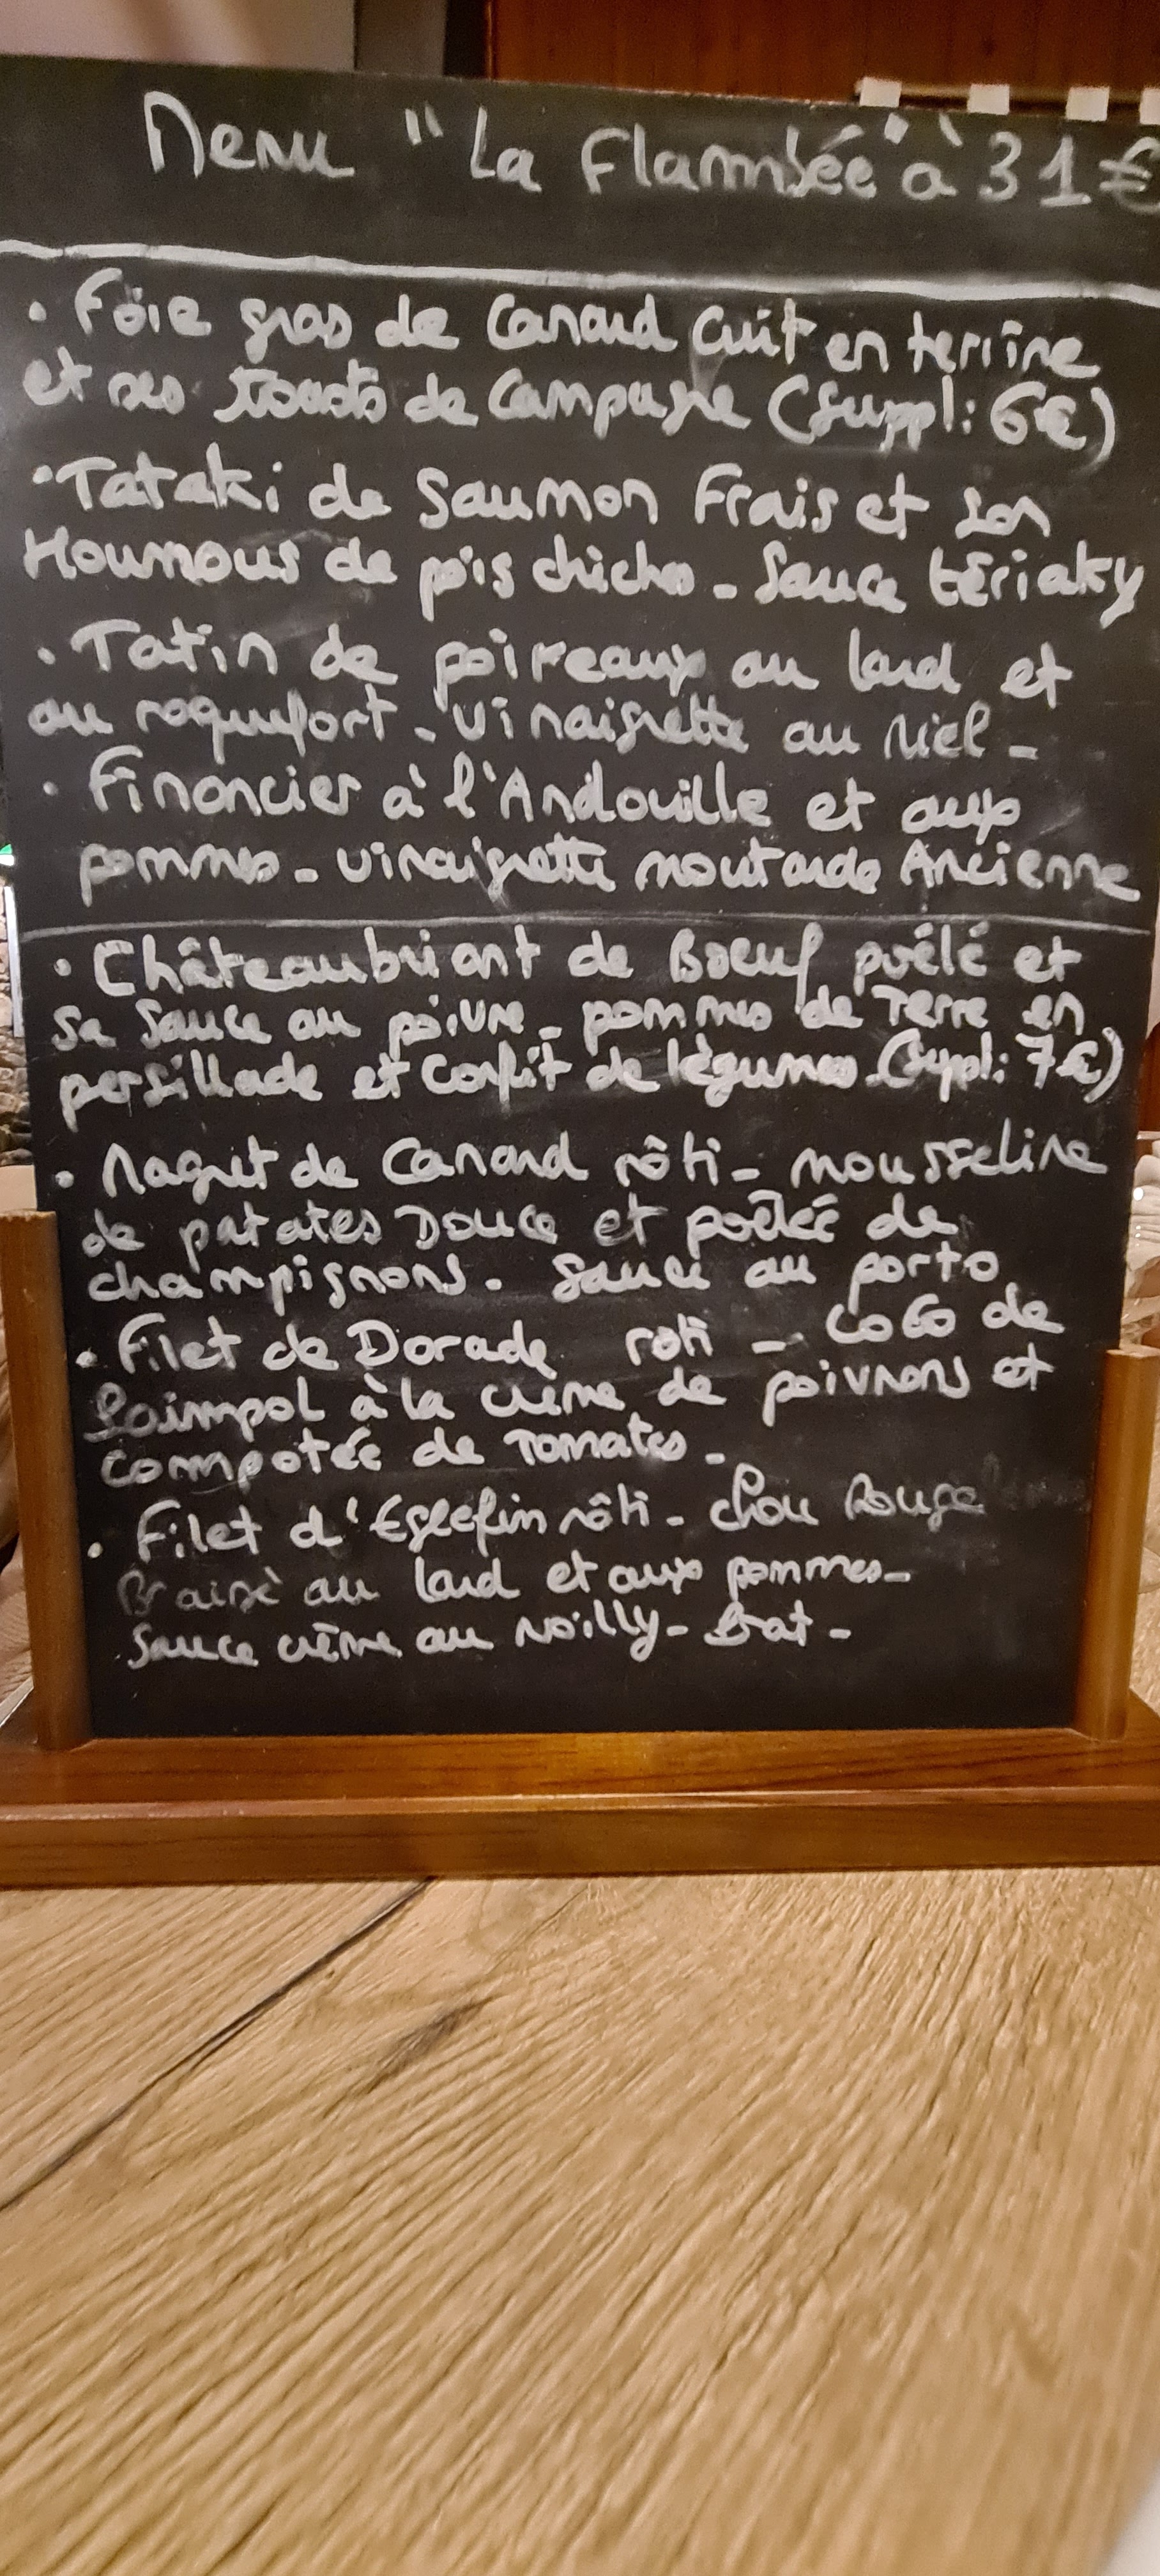 Menu "La Flambée" à 31€
• Foie gras de Canard cuit en terrine
et ses toasts de Campagne (suppl: 6€)
• Tataki de Saumon Frais et son
Houmous de pois chiches - Sauce tériaky
• Tatin de poireaux au lard et
au roquefort - vinaigrette au Miel -
• Financier à l'Andouille et aux
pommes - vinaigrette moutarde Ancienne
• Châteaubriant de Boeuf poêlé et
sa Sauce au poivre - pommes de Terre en
persillade et confit de légumes - (suppl: 7€)
• Magret de Canard rôti - mousseline
de patates Douce et poêlée de
champignons - Sauce au porto
• Filet de Dorade roti - CoCo de
Paimpol à la crème de poivrons et
compotée de Tomates -
• Filet d'Eglefin rôti - chou Rouge
Braisé au lard et aux pommes -
Sauce crème au Noilly - Prat -